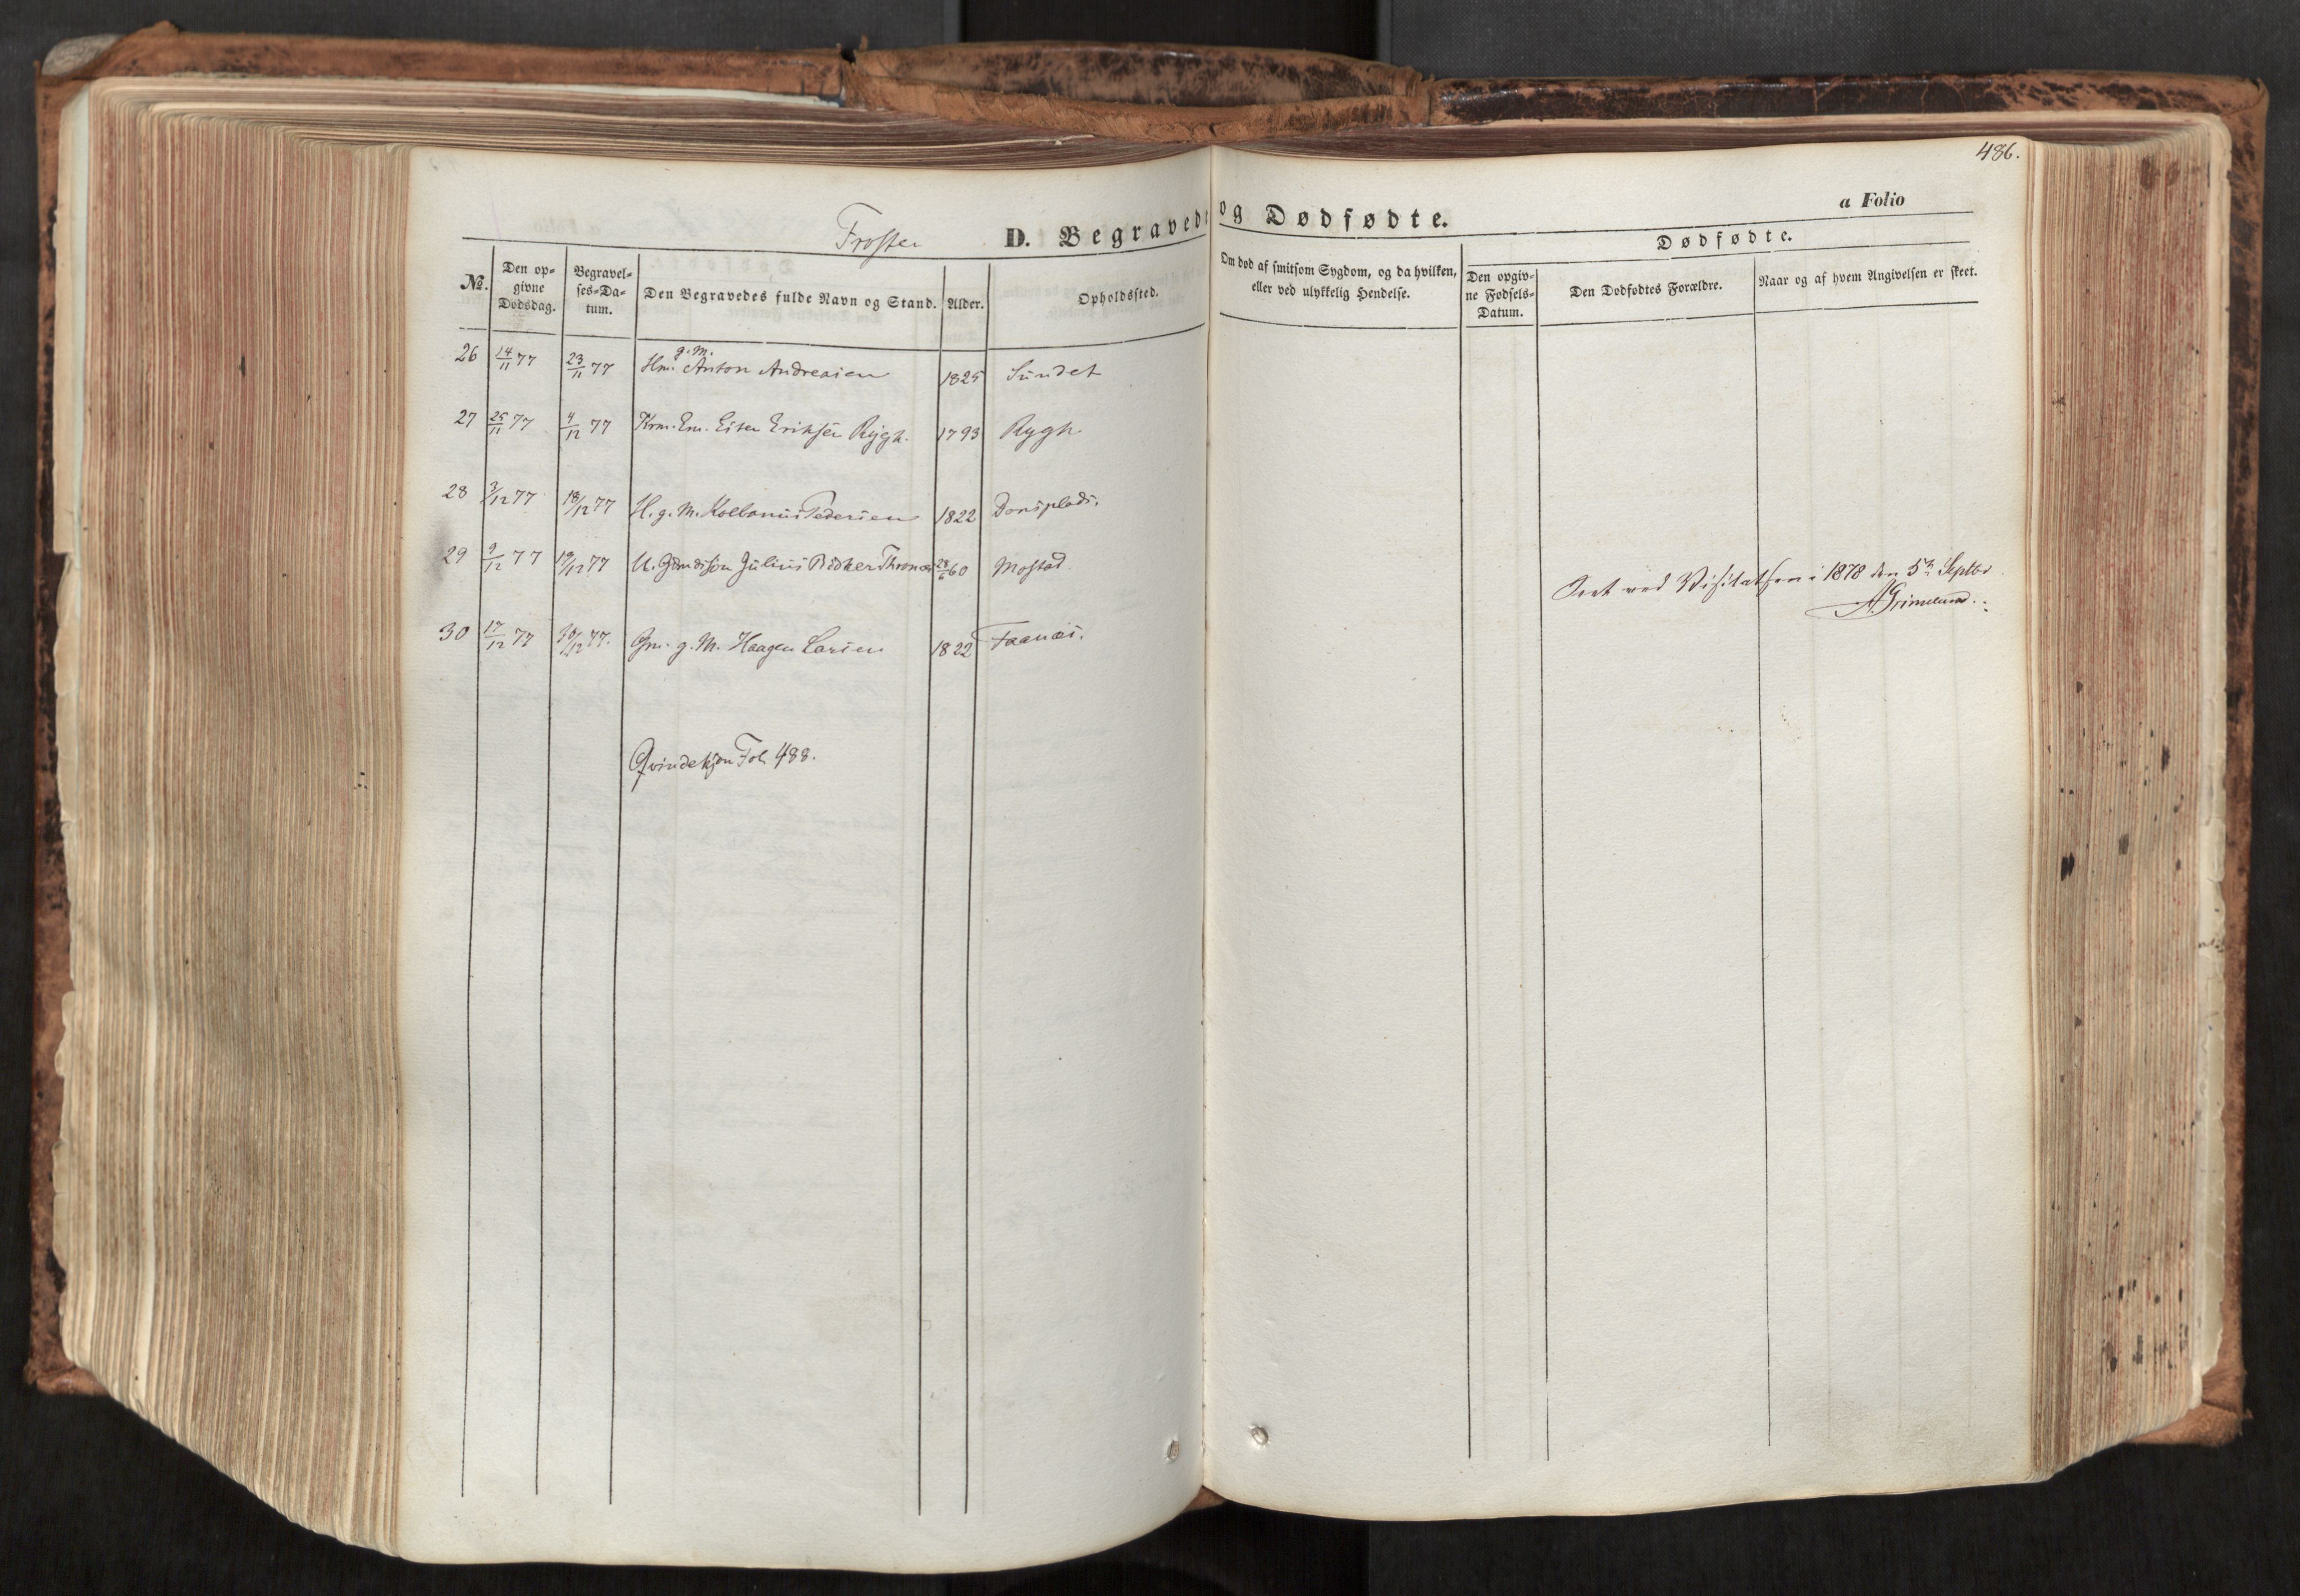 486.
a Folio
Frosten D. Begravede og Dødfødte.
Dødfødte.
No. Den opgivne Dødsdag. Begravelses-Datum. Den Begravedes fulde Navn og Stand. Alder. Opholdssted. Om død af smitsom Sygdom, og da hvilken, eller ved ulykkelig Hendelse. Den opgivne Fødsels-Datum. Den Dødfødtes Forældre. Naar og af hvem Angivelsen er skeet.
g. M.
26 14/11 77 23/11 77 Hm. Anton Andreasen 1825 Sundet
27 25/11 77 4/12 77 Krm. Em. Eiter Eriksen Rygh. 1793 Rygh
28 3/12 77 18/12 77 H. g. M. Kolbanus Pedersen 1822
29 9/12 77 19/12 77 U. Julius 28/6 60 Mostad
30 17/12 77 30/12 77. Gm. g. M. Haagen Larsen 1822 Faanæs.
Qvindekjøn Fol. 488.
Seet ved Visitatsen i 1878 den 5te Septbr
A Grimelund.